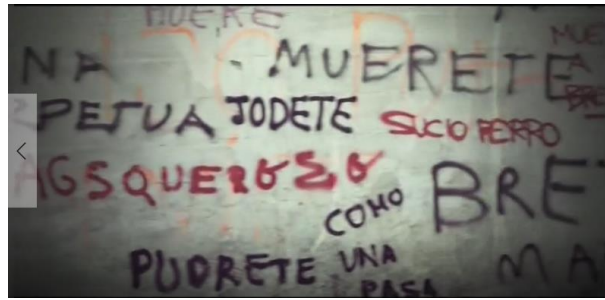 MUERE
NA MUERETE
PETUA JODETE SUCIO PERRO
AGSQUEROSO
BRE
COMO
PUDRETE UNA
PASA MA